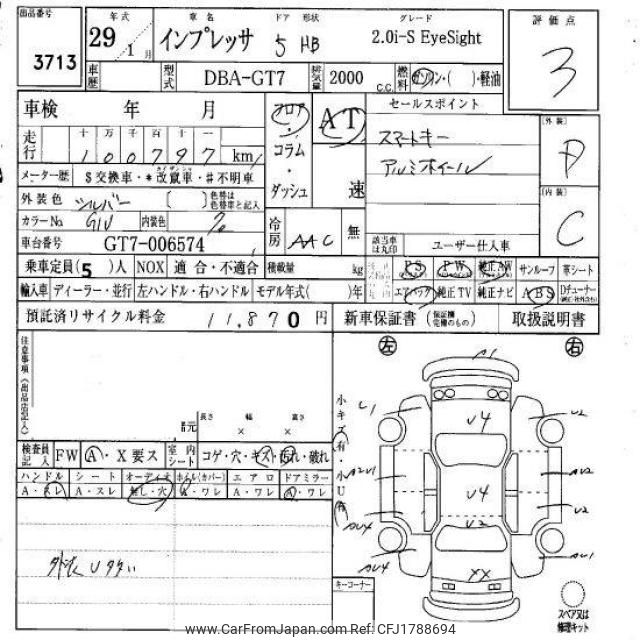 出品番号 年式 車名 ドア 形状 グレード 評価点
3713 29 /1月 インプレッサ 5 HB 2.0i-S EyeSight 3
車歴 型式 DBA-GT7 排気量 2000 c.c. 燃料 ガソリン・( )・軽油
車検 年 月 フロア・コラム・ダッシュ AT 速 セールスポイント
スマートキー
アルミホイール
[外装] D
[内装] C
走行 十 万 千 百 十 一
100797 km
メーター歴 $交換車・*改竄車・#不明車
外装色 シルバー [ ] 色替は色替車と記入
カラーNo G1U 内装色
冷房 AAC 無
該当車は丸印 ユーザー仕入車
車台番号 GT7-006574
乗車定員(5)人 NOX 適合・不適合 積載量 kg PS PW 純正AW サンルーフ 革シート
輸入車 ディーラー・並行 左ハンドル・右ハンドル モデル年式( )年 エアバック 純正TV 純正ナビ ABS Dチューナー
預託済リサイクル料金 11,870円 新車保証書 (保証継承可能のもの) 取扱説明書
注意事項(出品店記入)
左 右
A1
U1 U2
V4
小キズ(有)・小U(有)
A2U1 AU2
V4
U2 V2
AU4
AU4 AU1
XX
長さ 幅 高さ
元 × ×
検査員記入 FW A・X要ス 室内シート コゲ・穴・キズ・汚れ・破れ
ハンドル シート オーディオ ホイル(カバー) エアロ ドアミラー
A・スレ A・スレ 無し・穴 A・ワレ A・ワレ A・ワレ
外装Uタタい
キーコーナー
スペア又は修理キット
www.CarFromJapan.com Ref: CFJ1788694